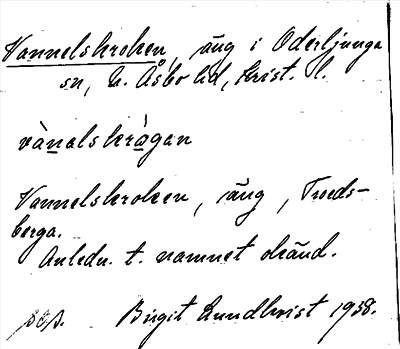 Vannelskroken, äng i Oderljunga
sn, N. Åsbo hd, Krist. l.
vànalskrågan
Vannelskroken, äng, Troeds-
berga.
Anledn. t. namnet okänd.
Birgit Lundkvist 1938.